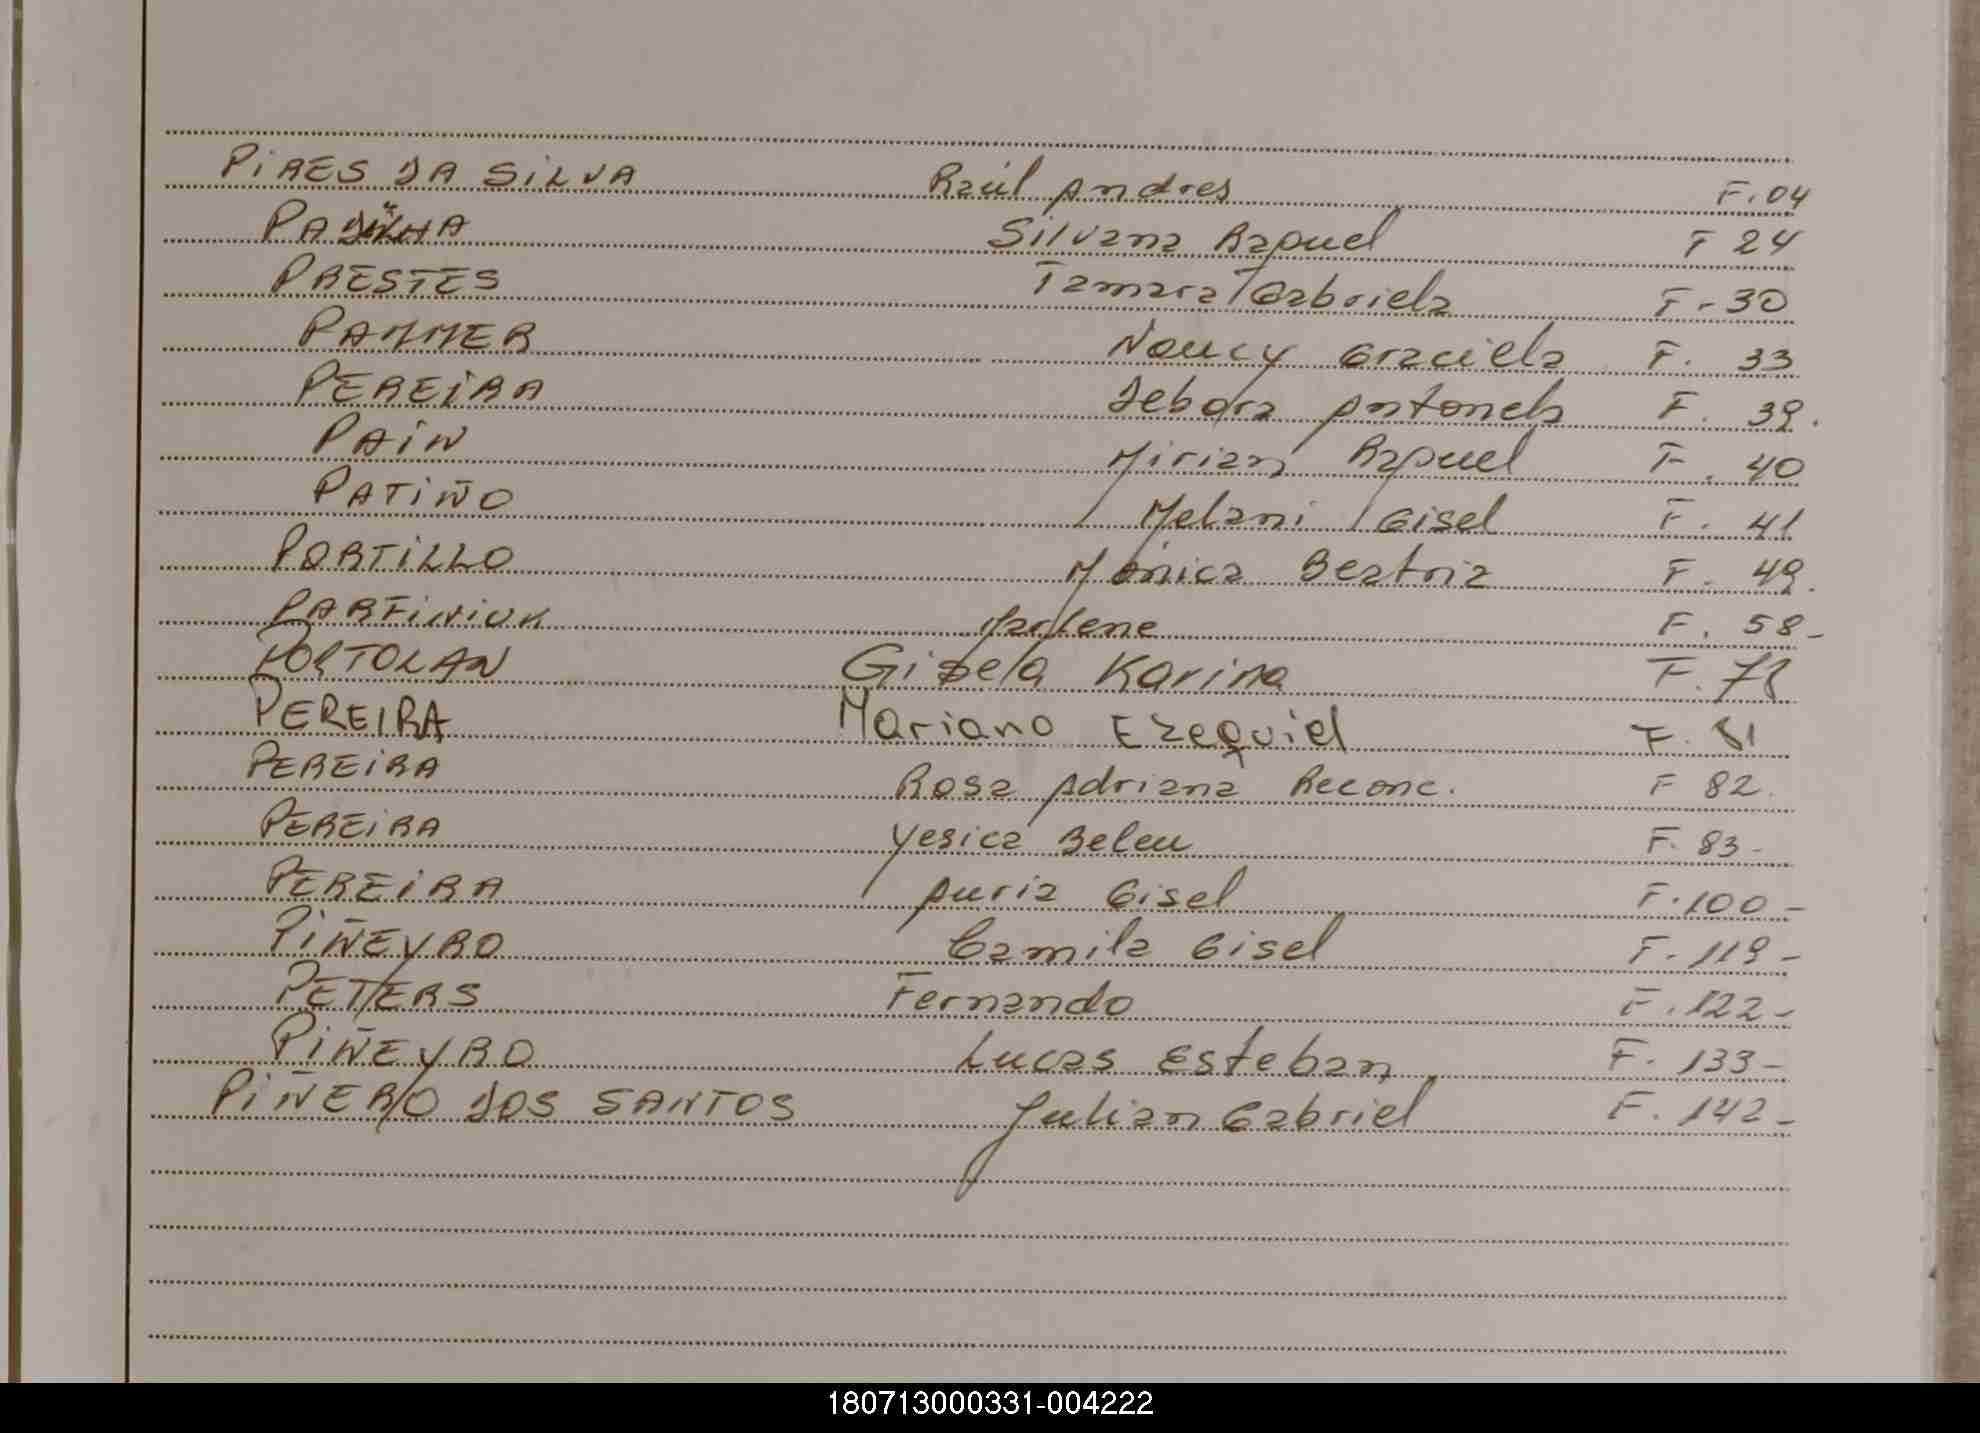 PIRES DA SILVA Raúl Andres F. 04
PADILHA Silvana Raquel F 24
PRESTES Tamara Gabriela F. 30
PAMMER Nancy Graciela F. 33
PEREIRA Debora Antonela F. 39.
PAIN Mirian Raquel F. 40
PATIÑO Melani Gisel F. 41
PORTILLO Mónica Beatriz F. 49.
PARFINIUK Marlene F. 58-
PORTOLAN Gisela Karina F.
PEREIRA Mariano Ezequiel F. 81
PEREIRA Rosa Adriana Reconc. F 82.
PEREIRA Yesica Belen F. 83-
PEREIRA Auria Gisel F. 100-
PIÑEYRO Camila Gisel F. 119-
PETERS Fernando F. 122-
PIÑEYRO Lucas Esteban F. 133-
PIÑERO DOS SANTOS Julian Gabriel F. 142-
180713000331-004222